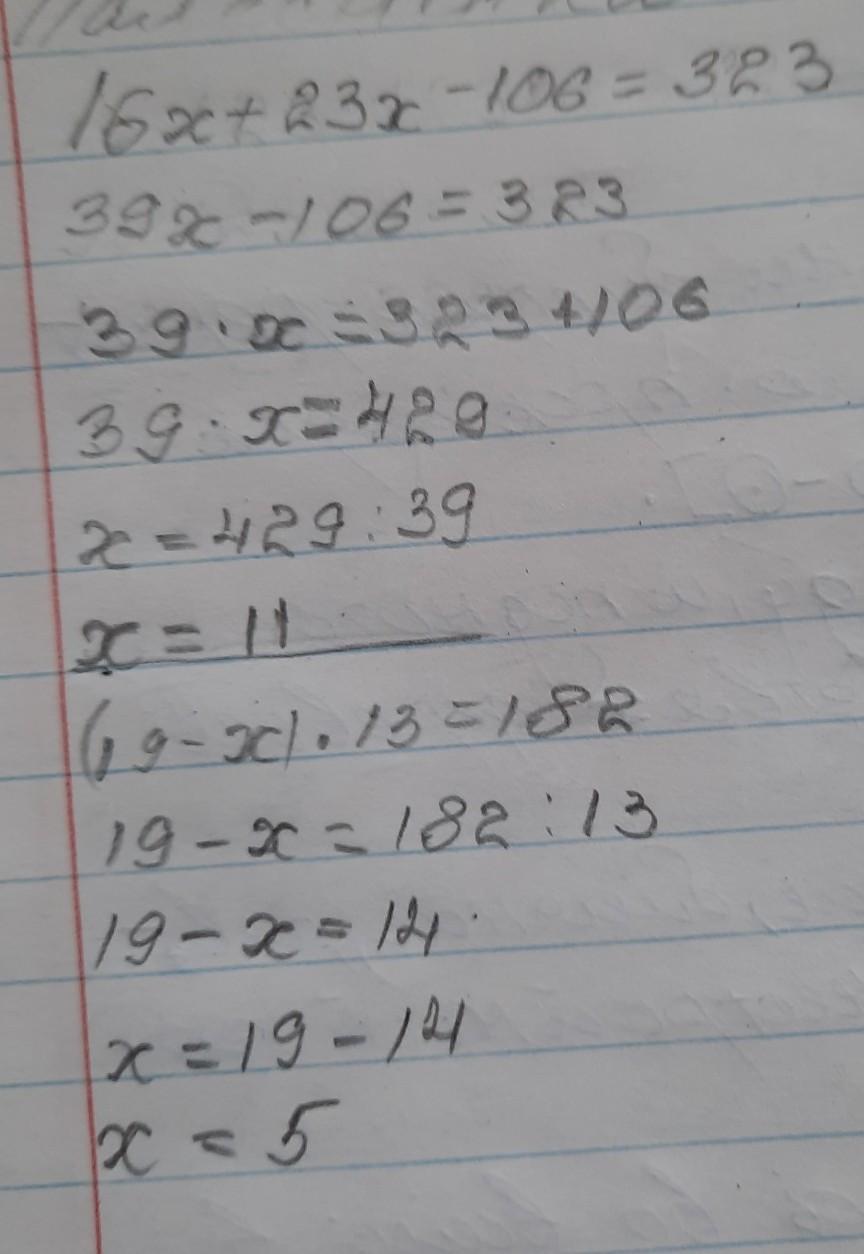 16x+23x-106=323
39x-106=323
39·x=323+106
39·x=429
x=429:39
x=11
(19-x)·13=182
19-x=182:13
19-x=14
x=19-14
x=5